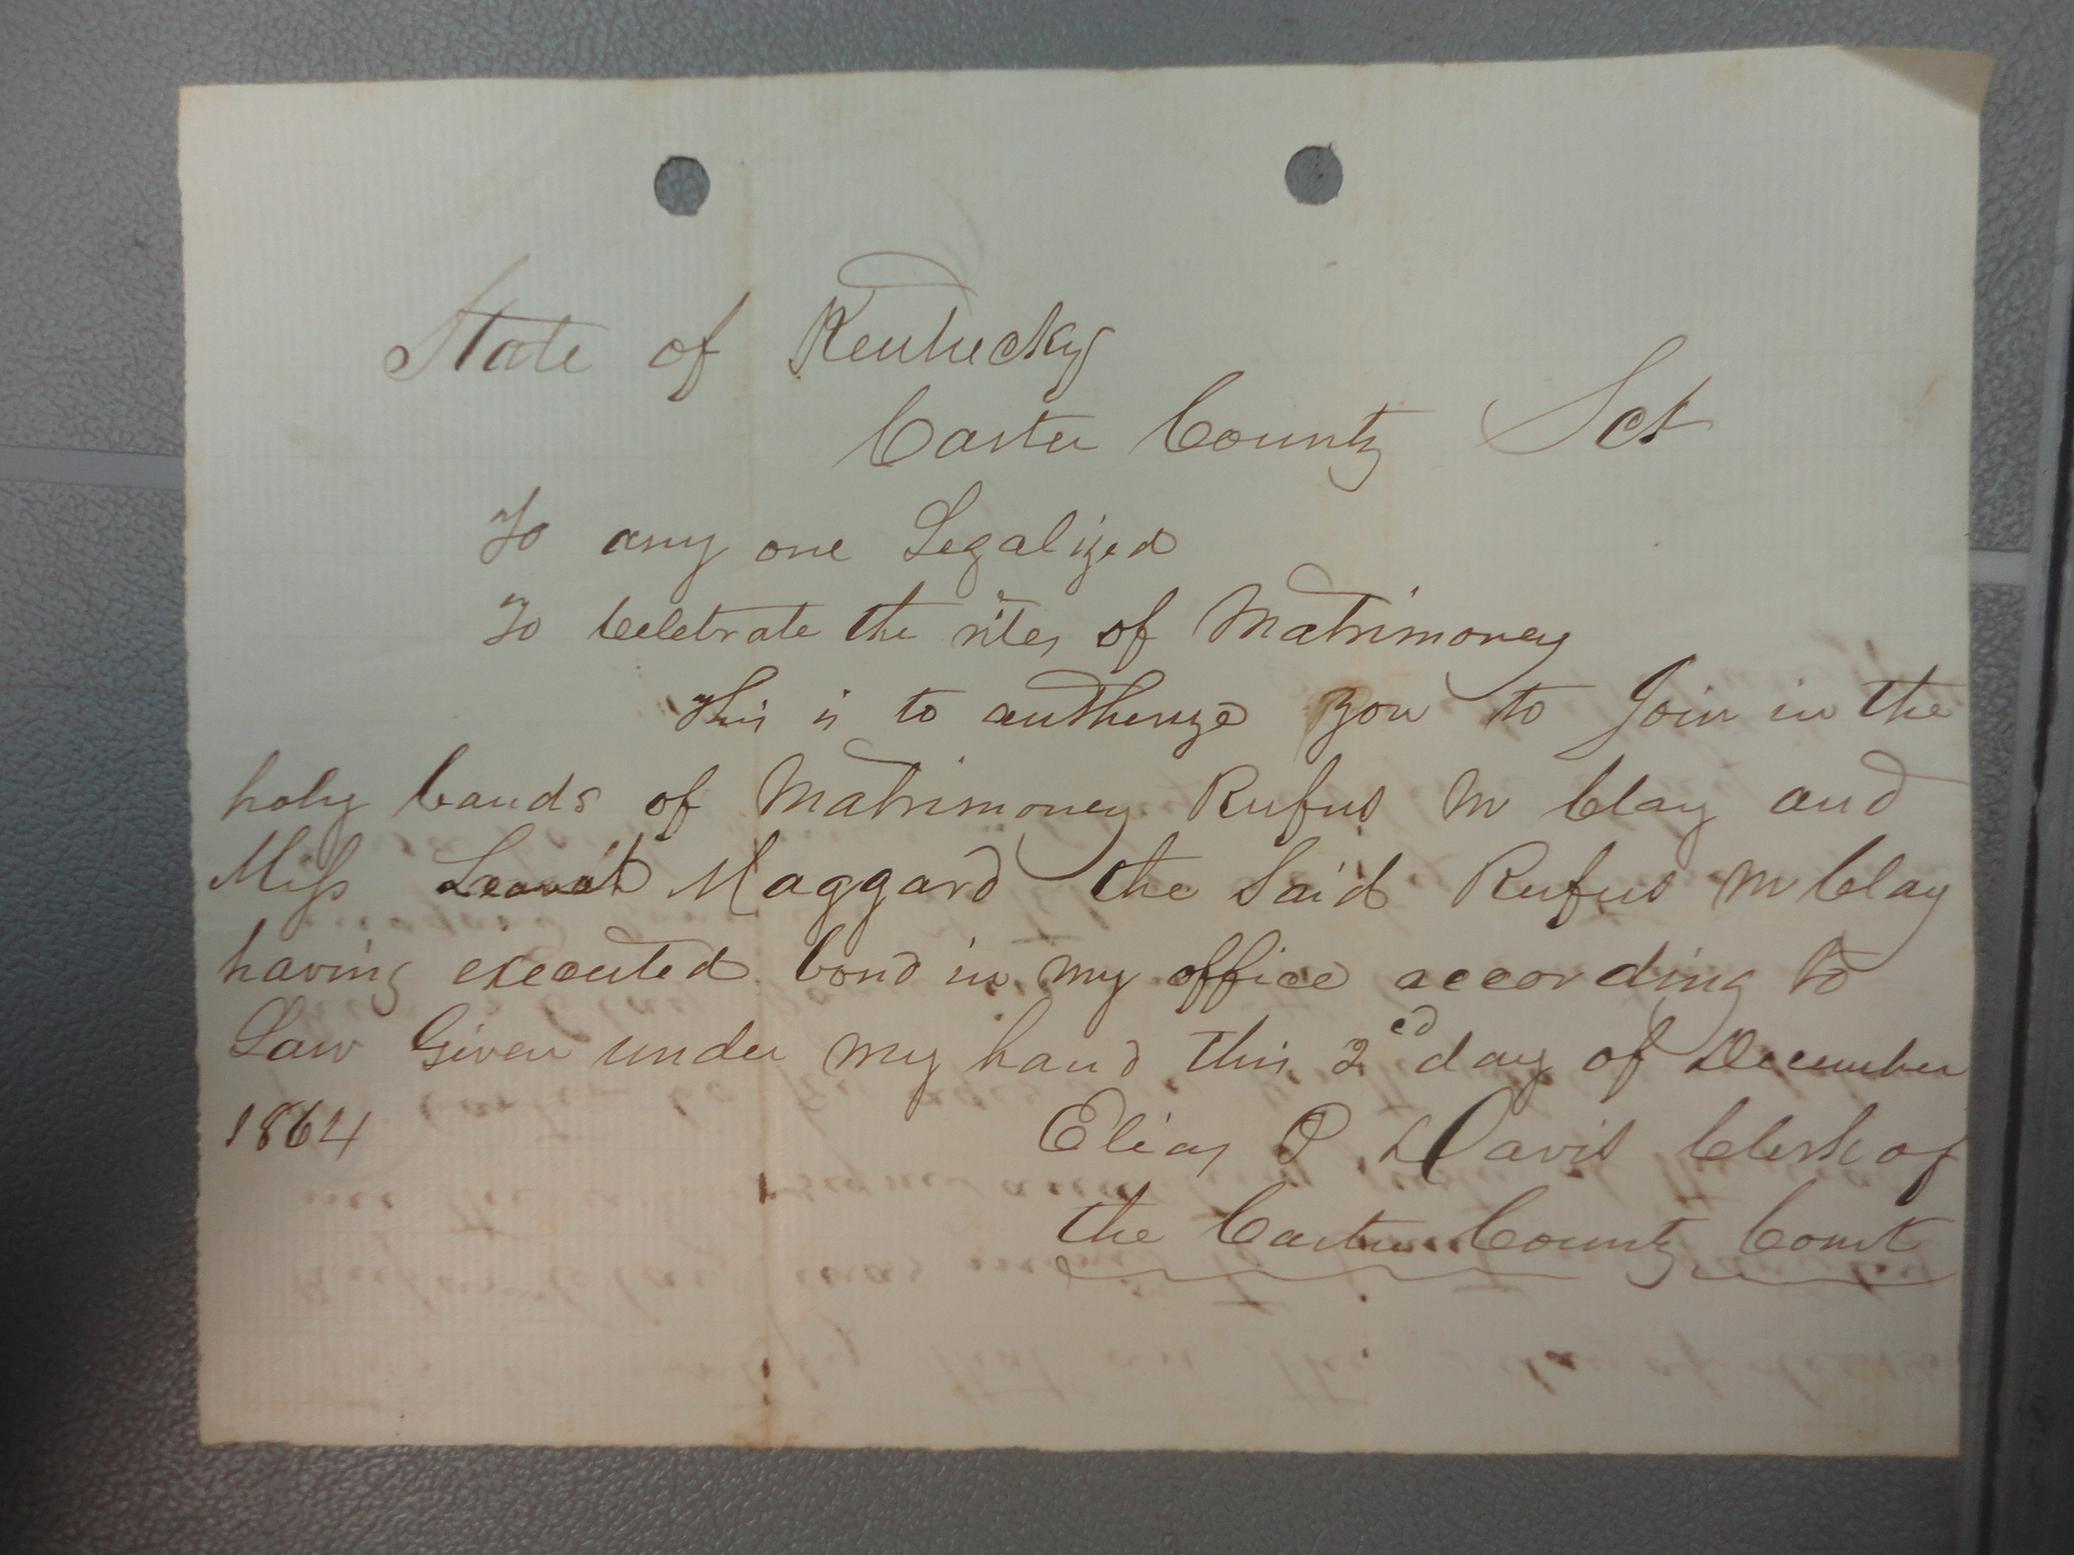 State of Kentucky
Carter County Sct
To any one Legalized
To Celebrate the rites of Matrimoney
This is to autherize you to Join in the
holy bands of Matrimoney Rufus M Clay and
Miss Maggard the Said Rufus M Clay
having executed bond in my office according to
Law Given under my hand this 2cd day of December
1864 Elias P Davis Clerk of
the Carter County Court